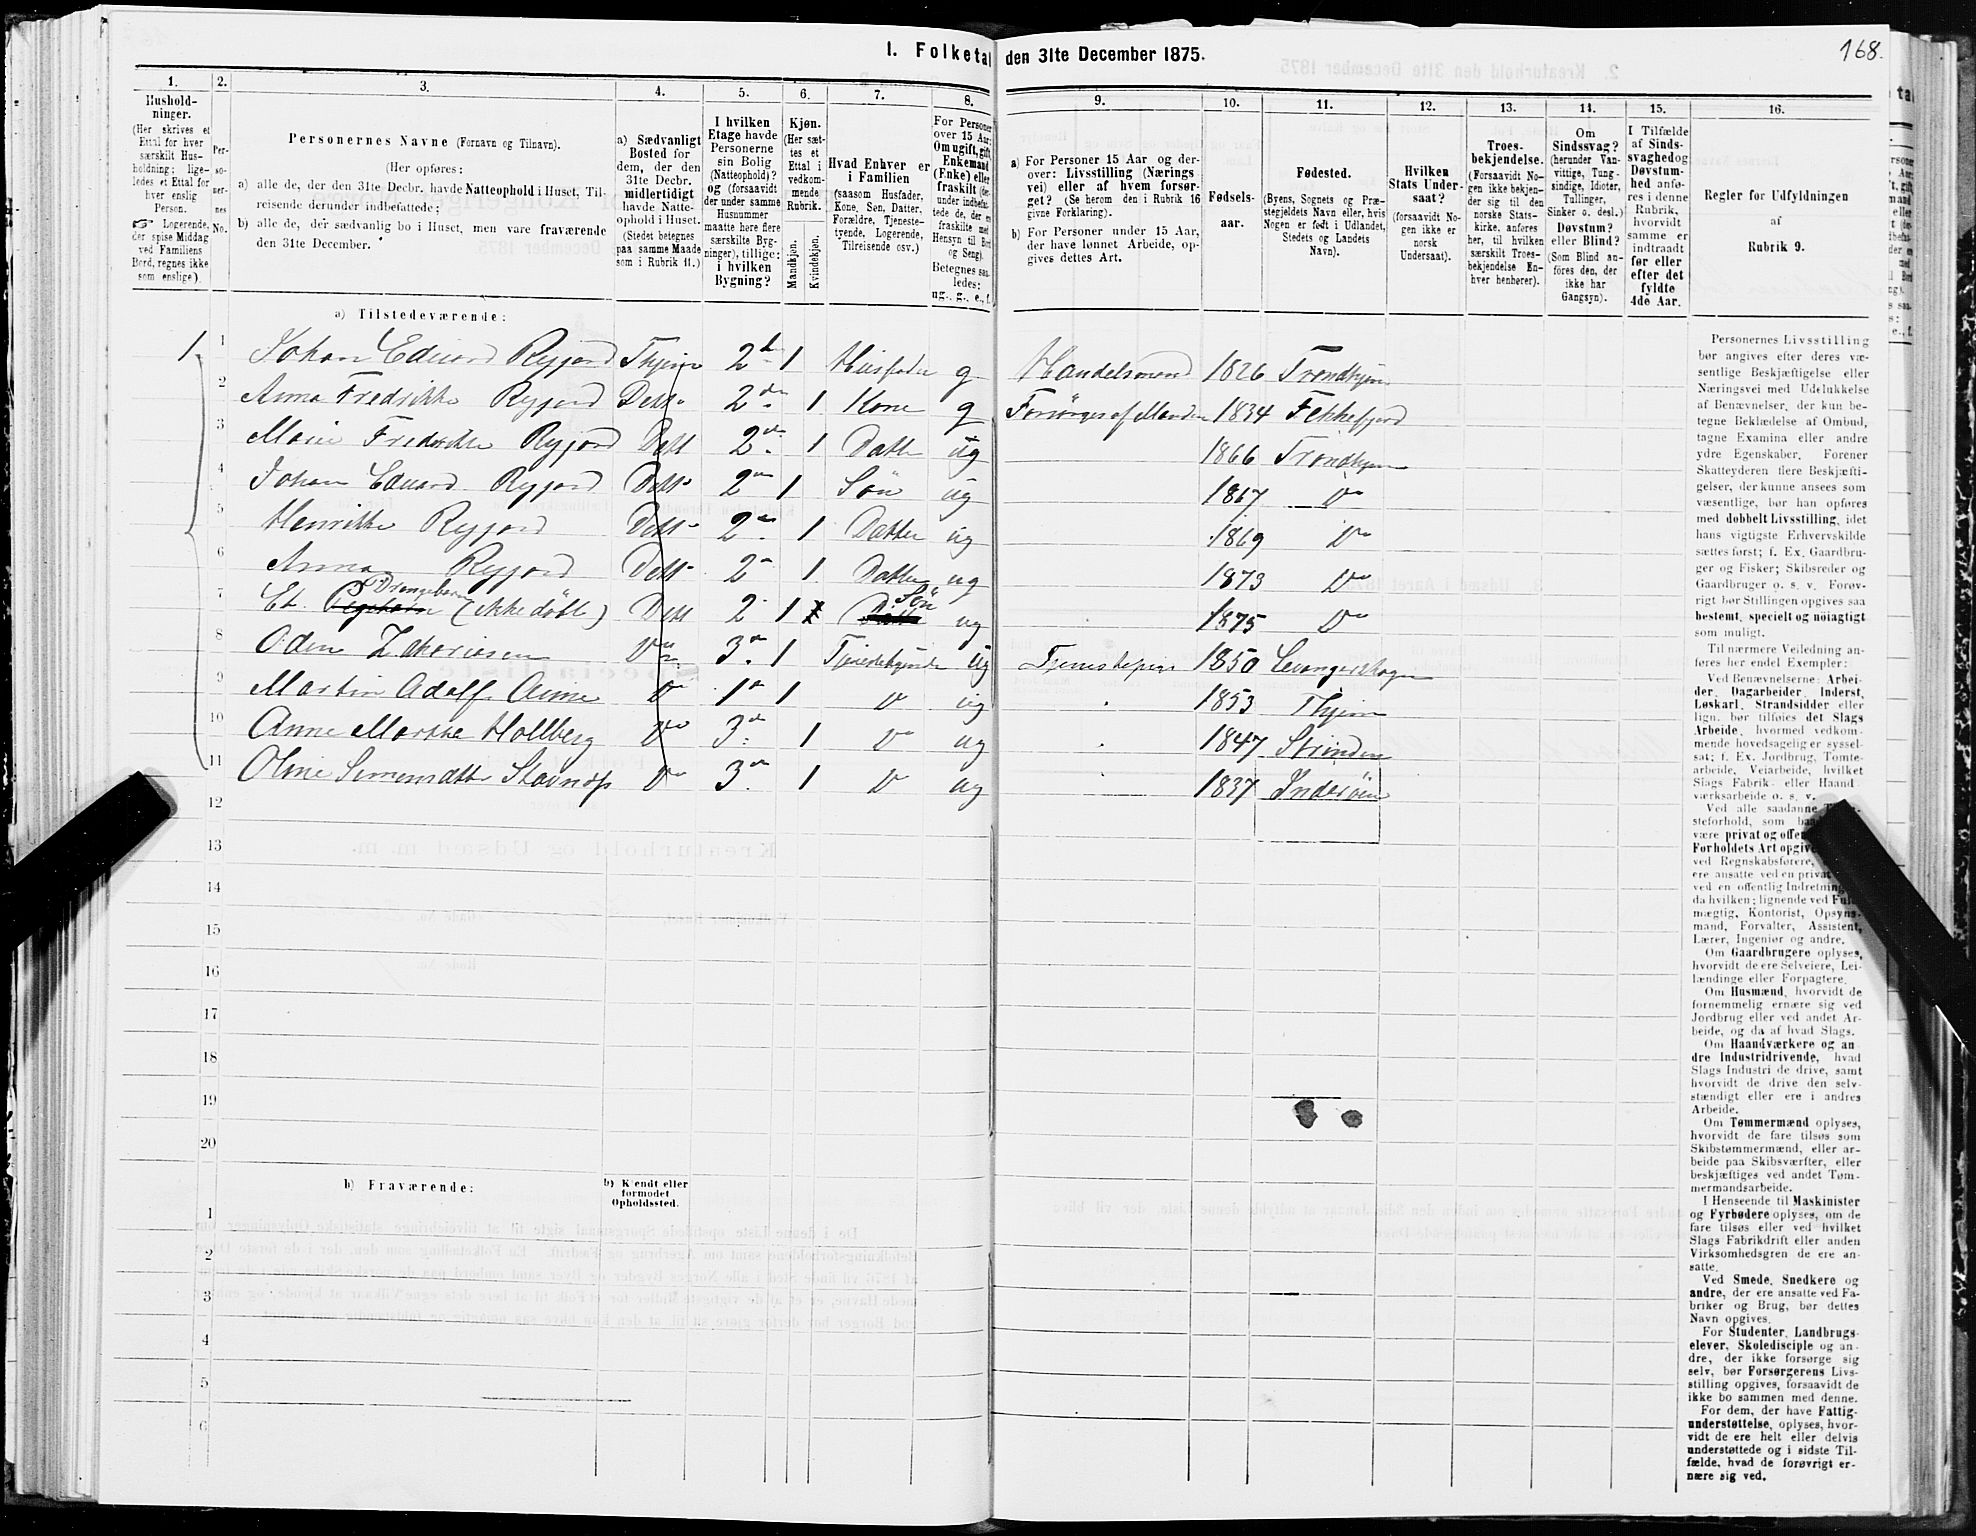 168.
I. Folketal den 31te December 1875.
1.
Hushold-
ninger.
(Her skrives et
Ettal for hver
særskilt Hus-
holdning; lige-
ledes et Ettal for
hver enslig
Person.
☞ Logerende,
der spise Middag
ved Familiens
Bord, regnes ikke
som enslige).
2.
Per-
so-
ner-
nes
No.
3.
Personernes Navne (Fornavn og Tilnavn).
(Her opføres:
a) alle de, der den 31te Decbr. havde Natteophold i Huset, Til-
reisende derunder indbefattede;
b) alle de, der sædvanlig bo i Huset, men vare fraværende
den 31te December.
4.
a) Sædvanligt
Bosted for
dem, der den
31te Decbr.
midlertidigt
havde Natte-
ophold i Huset.
(Stedet betegnes
paa samme Maade
som i Rubrik 11.)
5.
I hvilken
Etage havde
Personerne
sin Bolig
(Natteophold)?
og (forsaavidt
der under samme
Husnummer
maatte høre flere
særskilte Byg-
ninger), tillige:
i hvilken
Bygning?
6.
Kjøn.
(Her sæt-
tes et
Ettal i
vedkom-
mende
Rubrik.
Mandkjøn.
Kvindekjøn.
7.
Hvad Enhver er
i Familien
(saasom Husfader,
Kone, Søn, Datter,
Forældre, Tjeneste-
tyende, Logerende,
Tilreisende osv.)
8.
For Personer
over 15 Aar:
Om ugift, gift,
Enkemand
(Enke) eller
fraskilt (der-
under indbefat-
tede de, der er
fraskilte med
Hensyn til Bord
og Seng).
Betegnes saa-
ledes:
ug., g., e., f.
9.
a) For Personer 15 Aar og der-
over: Livsstilling (Nærings
vei) eller af hvem forsør-
get? (Se herom den i Rubrik 16
givne Forklaring).
b) For Personer under 15 Aar,
der have lønnet Arbeide, op-
gives dettes Art.
10.
Fødsels-
aar.
11.
Fødested.
(Byens, Sognets og Præ-
stegjeldets Navn eller, hvis
Nogen er født i Udlandet,
Stedets og Landets
Navn).
12.
Hvilken
Stats Under-
saat?
(forsaavidt No-
gen ikke er
norsk
Undersaat).
13.
Troes-
bekjendelse.
(Forsaavidt No-
gen ikke bekjen-
der sig til den
norske Stats-
kirke, anføres
her, til hvilken
særskilt Troes-
bekjendelse En-
hver henhører).
14.
Om
Sindssvag?
(herunder Van-
vittige, Tung-
sindige, Idioter,
Tullinger,
Sinker o. desl.)
Døvstum?
eller Blind?
(Som Blind an-
føres den, der
ikke har
Gangsyn).
15.
I Tilfælde
af Sinds-
svaghed og
Døvstum-
hed anfø-
res i denne
Rubrik,
hvorvidt
samme er
indtraadt
før eller
efter det
fyldte
4de Aar.
16.
Regler for Udfyldningen
af
Rubrik 9.
a) Tilstedeværende:
1 1 Johan Eduard Ryjord Thjem 2 1 Husfader g Handelsmand 1826 Trondhjem
2 Anna Fredrikke Ryjord Dette 2 1 Kone g Forsørges af Manden 1834 Fekkefjord
3 Marie Fredrikke Ryjord Dett 2 1 Datter ug 1866 Trondhjem
4 Johan Eduard Ryjord Dett 2 1 Søn ug 1867 Do
5 Henrikke Ryjord Dett 2 1 Datter ug 1869 Do
6 Anna Ryjord Dett 2 1 Datter ug 1873 Do
7 Et Drengebarn (ikke døbt) Dett 2 1 Søn ug 1875 Do
8 Oden Zakariasen Do 3 1 Tjenestetyende ug 1850 Levangerskogn
9 Martin Adolf Do 1 1 Do ug 1853 Thjem
10 Anne Marthe Hollberg Do 3 1 Do ug 1847 Strinden
11 Oline Do 3 1 Do ug 1837 Inderøen
12
13
14
15
16
17
18
19
20
b) Fraværende:
b) Kjendt eller
formodet
Opholdssted.
1
2
3
4
5
6
Personernes Livsstilling
bør angives efter deres væ-
sentlige Beskjæftigelse eller
Næringsvei med Udelukkelse
af Benævnelser, der kun be-
tegne Beklædelse af Ombud,
tagne Examina eller andre
ydre Egenskaber. Forener
Skatteyderen flere Beskjæfti-
gelser, der kunne ansees som
væsentlige, bør han opføres
med dobbelt Livsstilling, idet
hans vigtigste Erhvervskilde
sættes først; f. Ex. Gaardbru-
ger og Fisker; Skibsreder og
Gaardbruger o. s. v. Forøv-
rigt bør Stillingen opgives saa
bestemt, specielt og nøiagtigt
som muligt.
Til nærmere Veiledning an-
føres her endel Exempler:
Ved Benævnelserne: Arbei-
der, Dagarbeider, Inderst,
Løskarl, Strandsidder eller
lign. bør tilføies det Slags
Arbeide, hvormed vedkom-
mende hovedsagelig er syssel-
sat; f. Ex. Jordbrug, Tomte-
arbeide, Veiarbeide, hvilket
Slags Fabrik- eller Haand
værksarbeide o. s. v.
Ved alle saadanne
steforhold, som
være privat og
Forholdets Art
ved Regnskabsførere,
ere ansatte ved en privat
ved en offentlig Indretning
da hvilken; lignende ved Fuld-
mægtig, Kontorist, Opsyns-
mand, Forvalter, Assistent,
Lærer, Ingeniør og andre.
Om Gaardbrugere oplyses,
hvorvidt de ere Selveiere, Lei-
lændinge eller Forpagtere.
Om Husmænd, hvorvidt de
fornemmelig ernære sig ved
Jordbrug eller ved andet Ar-
beide, og da af hvad Slags.
Om Haandværkere og an
dre Industridrivende, hvad
Slags Industri de drive, samt
hvorvidt de drive den selv-
stændigt eller ere i andres
Arbeide.
Om Tømmermænd oplyses,
hvorvidt de fare tilsøs som
Skibstømmermænd, eller ar-
beide paa Skibsværfter, eller
beskjæftiges ved andet Tøm-
mermandsarbeide.
I Henseende til Maskinister
og Fyrbødere oplyses, om de
fare tilsøs eller ved hvilket
Slags Fabrikdrift eller anden
Virksomhedsgren de ere an-
satte.
Ved Smede, Snedkere og
andre, der ere ansatte ved Fa-
briker og Brug, bør dettes
Navn opgives.
For Studenter, Landbrugs-
elever, Skoledisciple og an-
dre, der ikke forsørge sig
selv, bør Forsørgerens Livs-
stilling opgives, forsaavidt de
ikke bo sammen med denne.
For dem, der have Fattig-
understøttelse, oplyses, hvor-
vidt de ere helt eller delvis
understøttede og i sidste Til-
fælde, hvad de forøvrigt er-
nære sig ved.